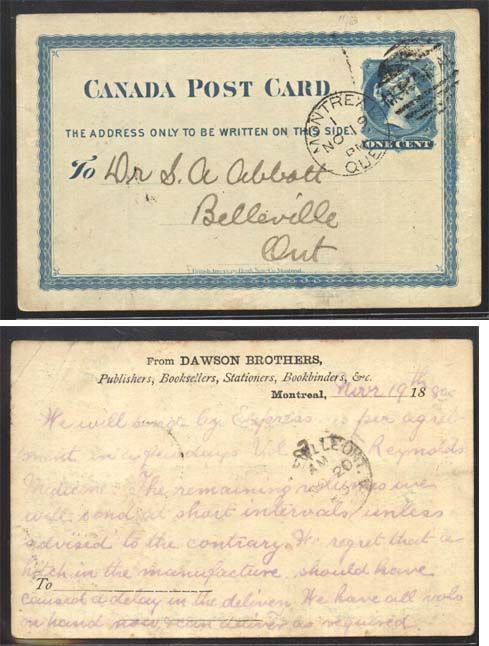 CANADA POST CARD.
THE ADDRESS ONLY TO BE WRITTEN ON THIS SIDE
ONE CENT
MONTREAL
1
NO 19
PM
QUE
To Dr S. A Abbott
Belleville
Ont
From DAWSON BROTHERS,
Publishers, Booksellers, Stationers, Bookbinders, &c.
Montreal, Novr 19th 1880
We will send by Express as per agree
ment in a few days Vol Reynolds
Medicine. The remaining volumes we
will send at short intervals unless
advised to the contrary. We regret that a
hitch in the manufacture should have
To
caused a delay in the delivery. We have all vols
on hand now & can deliver as required
BELLEVILLE ONT.
AM
NO 20